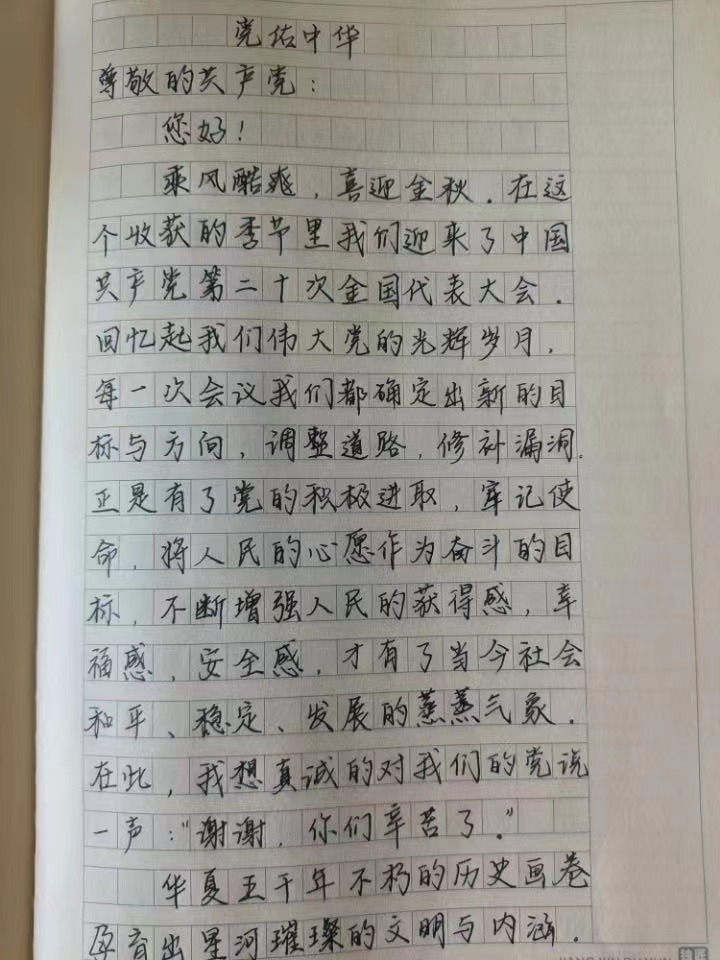 党佑中华
尊敬的共产党：
您好！
乘风酷爽，喜迎金秋．在这
个收获的季节里我们迎来了中国
共产党第二十次全国代表大会．
回忆起我们伟大党的光辉岁月，
每一次会议我们都确定出新的目
标与方向，调整道路，修补漏洞．
正是有了党的积极进取，牢记使
命，将人民的心愿作为奋斗的目
标，不断增强人民的获得感，幸
福感，安全感，才有了当今社会
和平、稳定、发展的蒸蒸气象．
在此，我想真诚的对我们的党说
一声："谢谢，你们辛苦了。"
华夏五千年不朽的历史画卷
孕育出星河璀璨的文明与内涵．